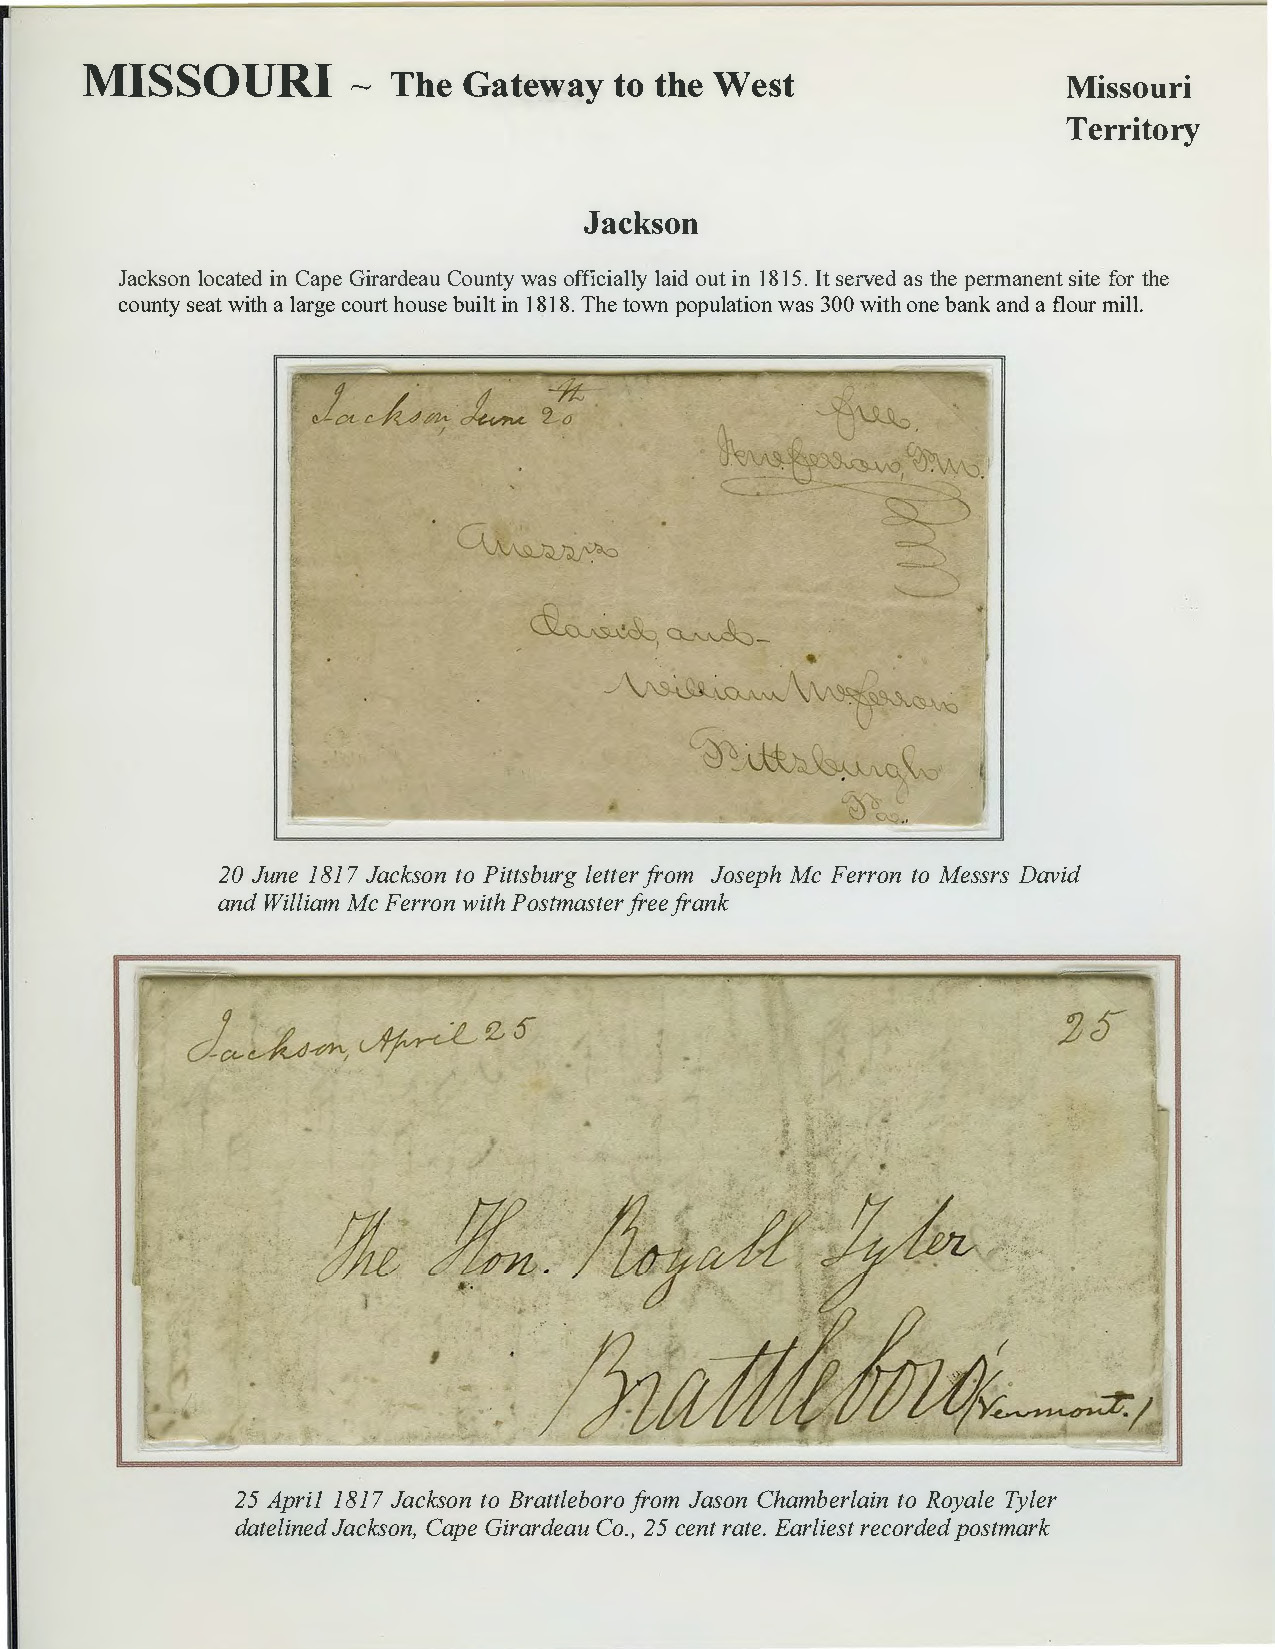 MISSOURI ~ The Gateway to the West
Missouri
Territory
Jackson
Jackson located in Cape Girardeau County was officially laid out in 1815. It served as the permanent site for the
county seat with a large court house built in 1818. The town population was 300 with one bank and a flour mill.
Jackson, June 20th
free.
McFerron, P.M.
Messrs
David, and-
William McFerron
Pittsburgh
Pa.
20 June 1817 Jackson to Pittsburg letter from Joseph Mc Ferron to Messrs David
and William Mc Ferron with Postmaster free frank
Jackson, April 25
25
The Hon. Royall Tyler
Brattleboro' (Vermont.)
25 April 1817 Jackson to Brattleboro from Jason Chamberlain to Royale Tyler
datelined Jackson, Cape Girardeau Co., 25 cent rate. Earliest recorded postmark